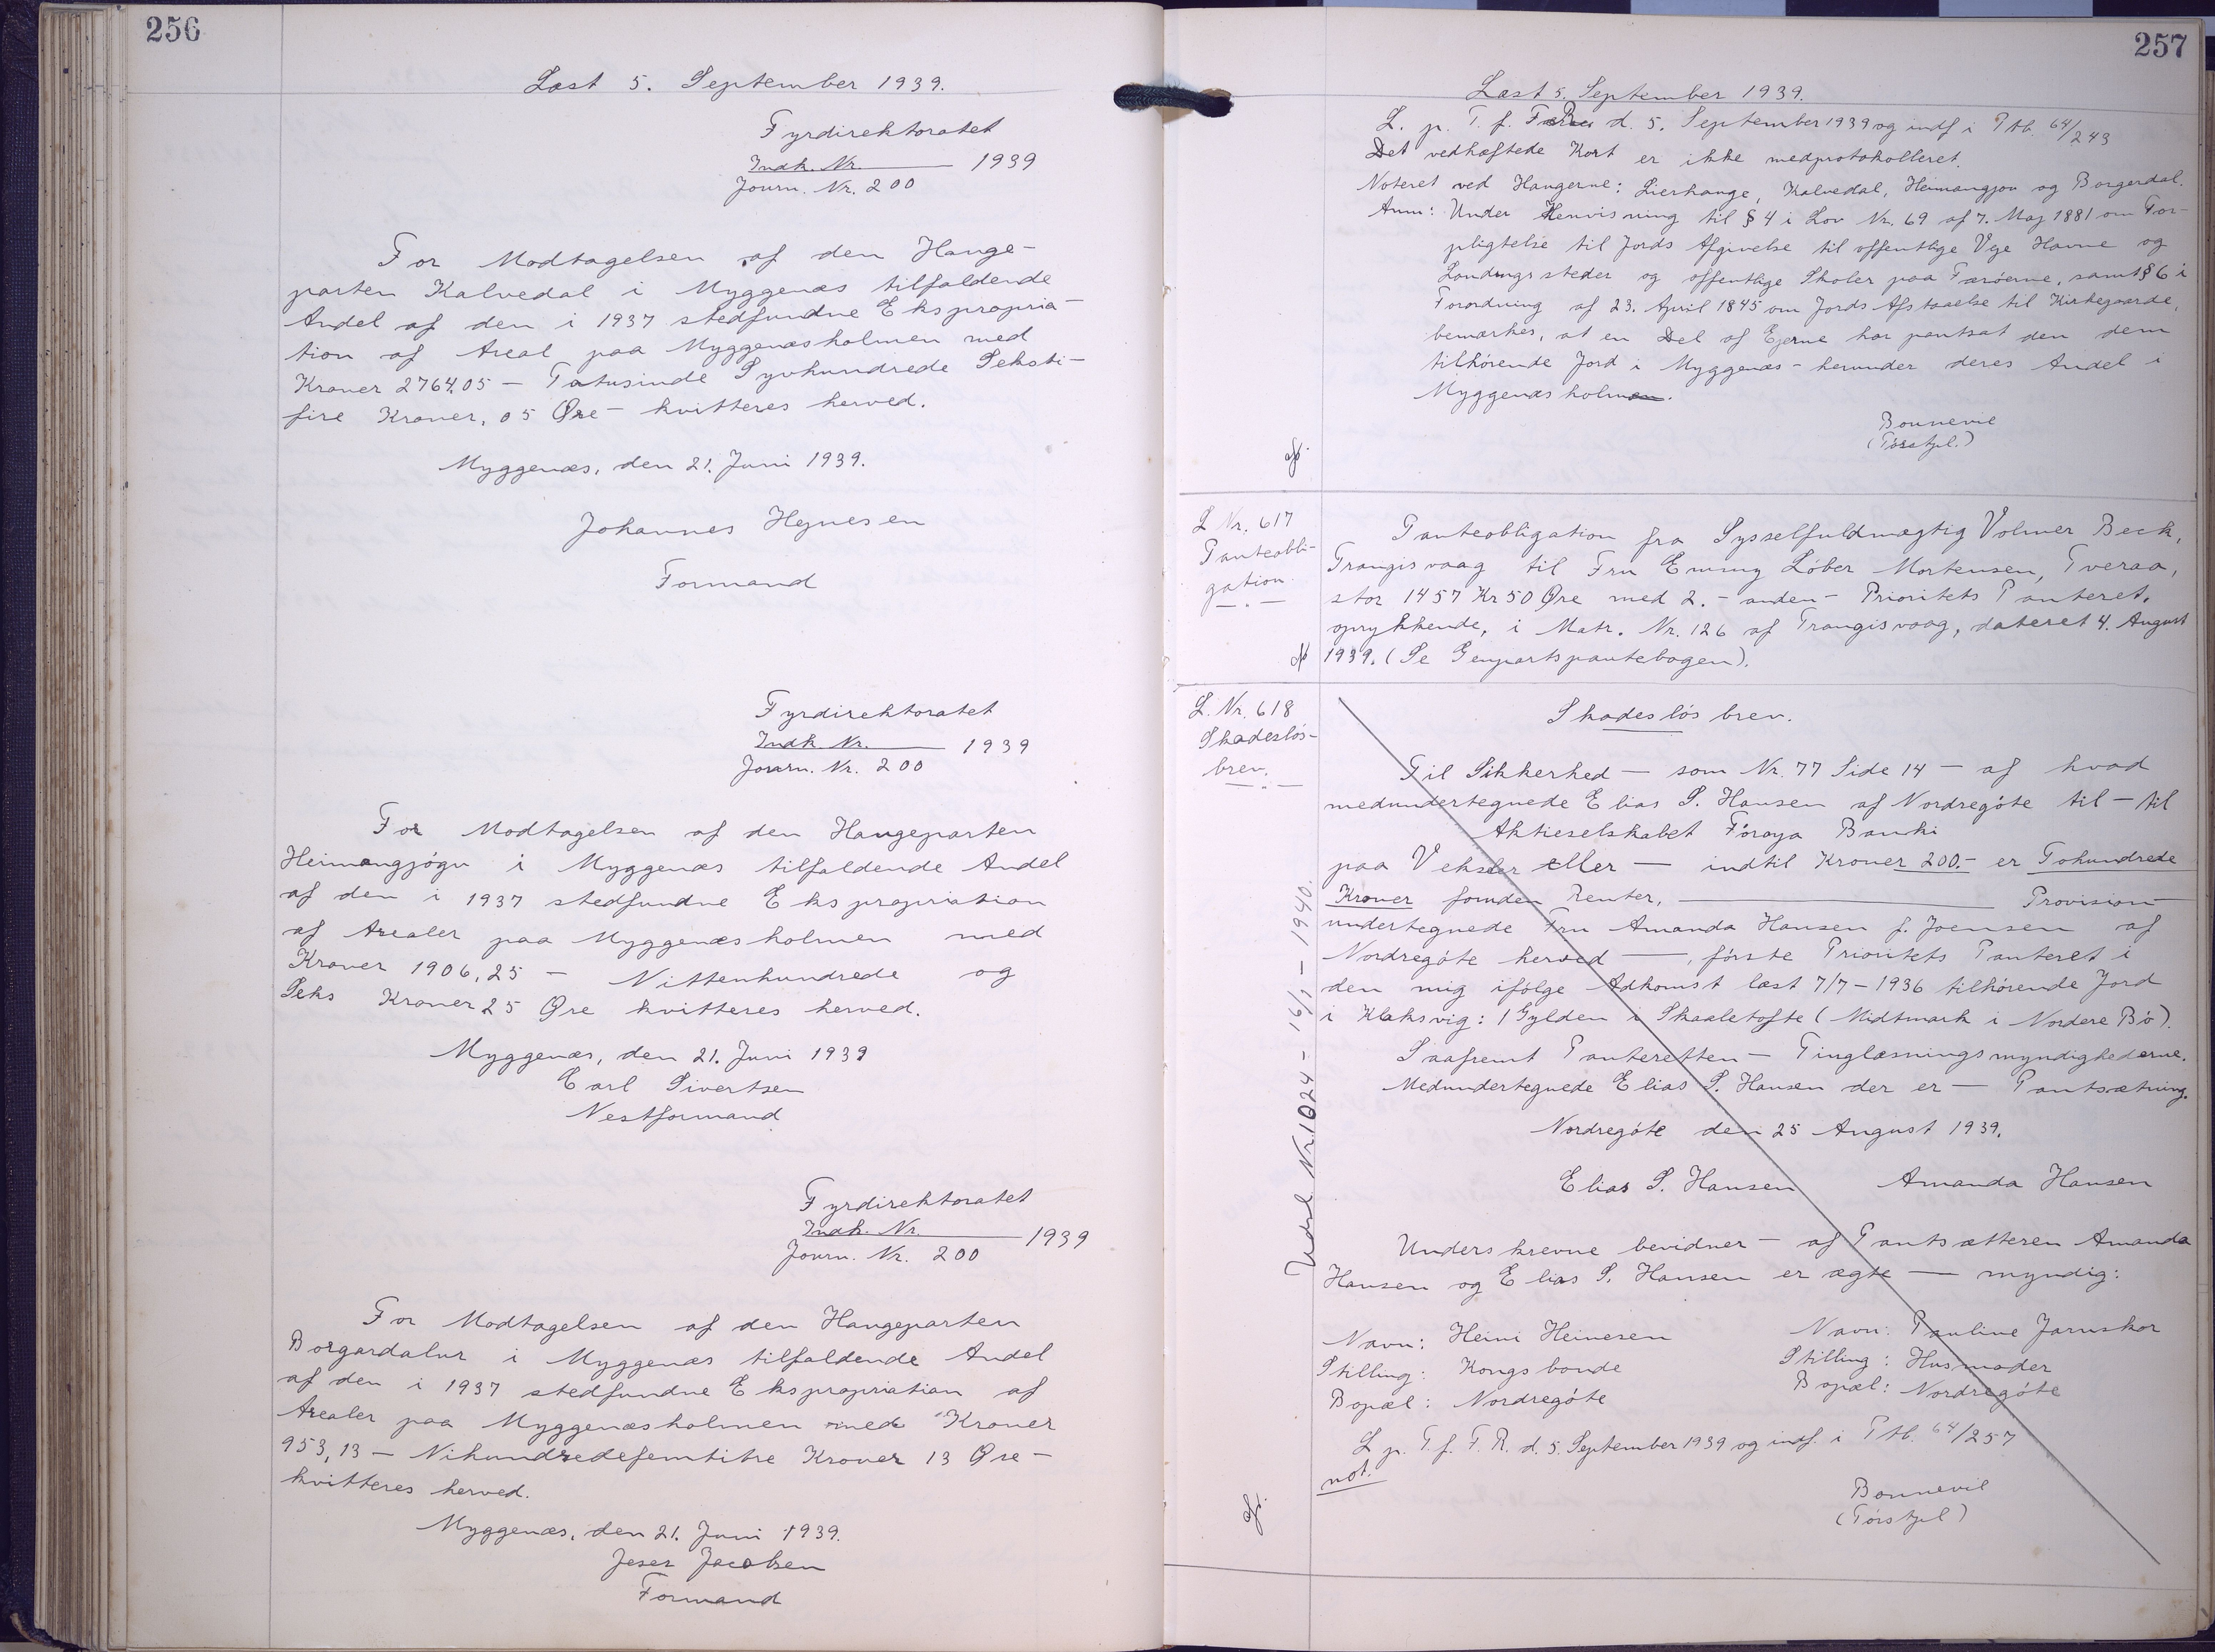 256
Læst 5. September 1939.
Fyrdirektoratet
Indk. Nr. 1939
Journ. Nr. 200
For Modtagelsen af den Hauge-
parten Kalvedal i Myggenæs tilfaldende
Andel af den i 1937 stedfundne Ekspropria-
tion af Areal paa Myggenæsholmen med
Kroner 2764.05 — Totusinde Syvhundrede Seksti-
fire Kroner, 05 Øre — kvitteres herved.
Myggenæs, den 21. Juni 1939.
Johannes Hejnesen
Formand
Fyrdirektoratet
Indk. Nr. 1939
Journ. Nr. 200
For Modtagelsen af den Haugeparten
Heimangjógv i Myggenæs tilfaldende Andel
af den i 1937 stedfundne Ekspropriation
af Arealer paa Myggenæsholmen med
Kroner 1906,25 — Nittenhundrede og
Seks Kroner 25 Øre kvitteres herved.
Myggenæs, den 21. Juni 1939
Carl Sivertsen
Nestformand
Fyrdirektoratet
Indk. Nr. 1939
Journ. Nr. 200
For Modtagelsen af den Haugeparten
Borgardalur i Myggenæs tilfaldende Andel
af den i 1937 stedfundne Ekspropriation af
Arealer paa Myggenæsholmen med Kroner
953,13 — Nihundredefemtitre Kroner 13 Øre —
kvitteres herved.
Myggenæs, den 21. Juni 1939.
Jacobsen
Formand
257
Læst 5. September 1939.
L. p. T. f. d. 5. September 1939 og indf i Ptb. 64/243
Det vedhæftede Kort er ikke medprotokolleret.
Noteret ved Haugerne: Lierhauge, Kalvedal, Heimangjov og Borgerdal.
Anm: Under Henvisning til § 4 i Lov Nr. 69 af 7. Maj 1881 om For-
pligtelse til Jords Afgivelse til offentlige Veje Havne og
Landingssteder og offentlige Skoler paa Færøerne, samt § 6 i
Forordning af 23. April 1845 om Jords Afstaaelse til Kirkegaarde,
bemærkes, at en Del af Ejerne har pantsat den dem
tilhørende Jord i Myggenæs — herunder deres Andel i
Myggenæsholmen.
Bonnevie
(Førstful.)
afs.
L Nr. 617
Panteobli-
gation.
Panteobligation fra Sysselfuldmægtig Volmer Beck,
Trangisvaag til Fru Emmy Løber Mortensen, Tveraa,
stor 1457 Kr 50 Øre med 2. — anden — Prioritets Panteret,
oprykkende, i Matr. Nr. 126 af Trangisvaag, dateret 4. August
1939. (Se Genpartspantebogen).
L. Nr. 618
Skadesløs-
brev.
Skadesløsbrev.
Til Sikkerhed — som Nr. 77 Side 14 — af hvad
medundertegnede Elias S. Hansen af Nordregøte til — til
Aktieselskabet Føroya Banki
paa Veksler eller — indtil Kroner 200.- er Tohundrede
Kroner foruden Renter, Provision
undertegnede Fru Amanda Hansen f. Joensen af
Nordregøte herved — , første Prioritets Panteret i
den mig ifølge Adkomst læst 7/7 - 1936 tilhørende Jord
i Klaksvig: 1 Gylden i Skaaletofte (Midtmark i Nordere Bø).
Saafremt Panteretten — Tinglæsningsmyndighederne.
Medundertegnede Elias S. Hansen der er — Pantsætning.
Nordregøte den 25 August 1939.
Elias S. Hansen Amanda Hansen
Underskrevne bevidner — af Pantsætteren Amanda
Hansen og Elias S. Hansen er ægte — myndig:
Navn: Heini Heinesen Navn: Pauline Jarnskor
Stilling: Kongsbonde Stilling: Husmoder
Bopæl: Nordregøte Bopæl: Nordregøte
L. p. T. f. F. R. d. 5. September 1939 og indf. i Ptb. 64/257
not.
Bonnevie
(Førstful)
afs.
Udsl Nr. 1024 - 16/1 - 1940.